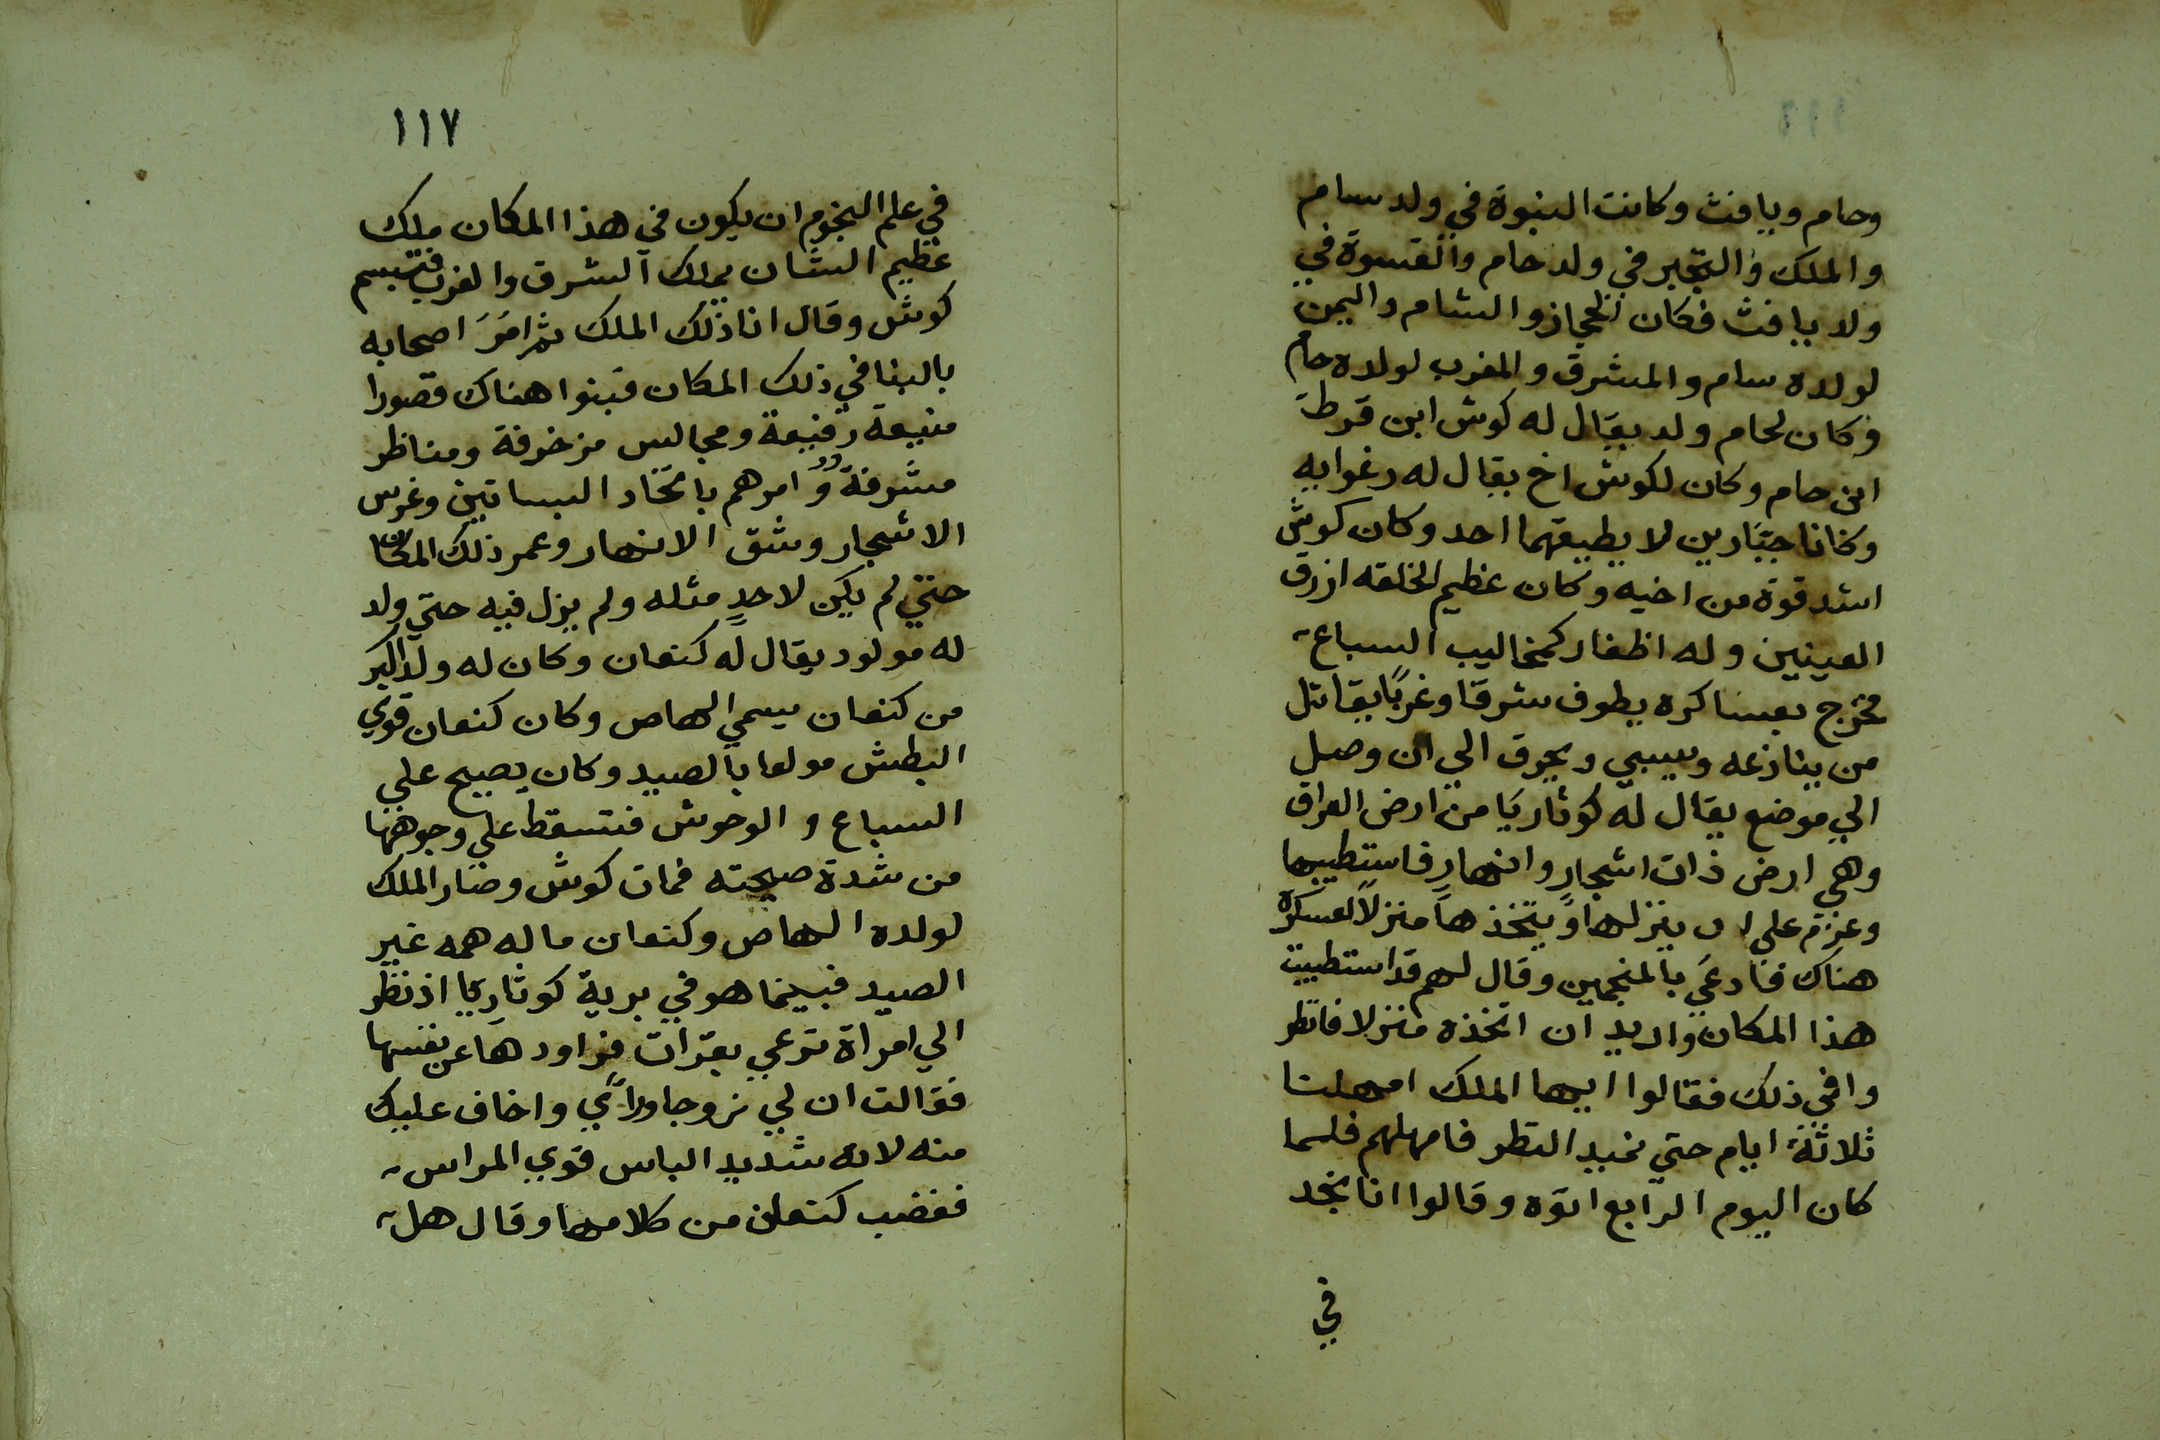 وحام ويافث وكانت النبوة في ولد سام
والملك والتجبر في ولد حام والقسوة في
ولا يافث فكان الحجاز والشام واليمن
لولده سام والمشرق والمغرب لولده حام
وكان لحام ولد يقال له كوش ابن قرط
ابن حام وكان لكوش اخ يقال له رغوايه
وكانا جبَّارين لا يطيقهما احد وكان كوش
اشد قوة من اخيه وكان عظيم الخلقه ازرق
العينين وله اظفار كمخاليب السباع
فخرج بعساكره يطوف شرقا وغربًا يقاتل
من ينازعه ويسبي ويحرق الي ان وصل
الي موضع يقال له كوثاريَا من ارض العراق
وهي ارض ذات اشجارٍ وانهارٍ فاستطيبها
وعزم علي ان ينزلها ويتخذهَا منزلاً لعسكره
هناك فنادعَي بالمنجمين وقال لهم قد استطيبت
هذا المكان واريد ان اتخذه منزلا فانظر
وا في ذلك فقالوا ايها الملك امهلنا
ثلاثة ايام حتي نجيد النظر فامهلهم فلما
كان اليوم الرابع اتوه وقالوا انا نجد
في
١١٧
في علم النجوم ان يكون في هذا المكان ملك
عظيم الشان يملك الشرق والغرب فتبسم
كوش وقال انا ذلك الملك ثم امَرَ اصحابه
بالبنا في ذلك المكان فبنوا هناك قصورا
منيعة رفيعة ومجالس مزخرفة ومناظر
مشرفة وامرهم باتخاد البساتين وغرس
الاشجار وشق الانهار وعمر ذلك المكان
حتي لم يكن لاحدٍ مثله ولم يزل فيه حتي ولد
له مولود يقال له كنعان وكان له ولد اكبر
من كنعان يسمي الهاص وكان كنعان قوي
البطش مولعا بالصيد وكان يصيح علي
السباع والوحوش فتسقط علي وجوهها
من شدة صيحته فمات كوش وصار الملك
لولده الهاص وكنعان ما له همه غير
الصيد فبينما هو في برية كوثاريَا اذ نظر
الي امراة ترعي بقرات فراودهَا عن نفسها
فقالت ان لي زوجا وراي واخاف عليك
منه لانه شديد الباس قوي المراس
فغضب كنعان من كلامها وقال هل